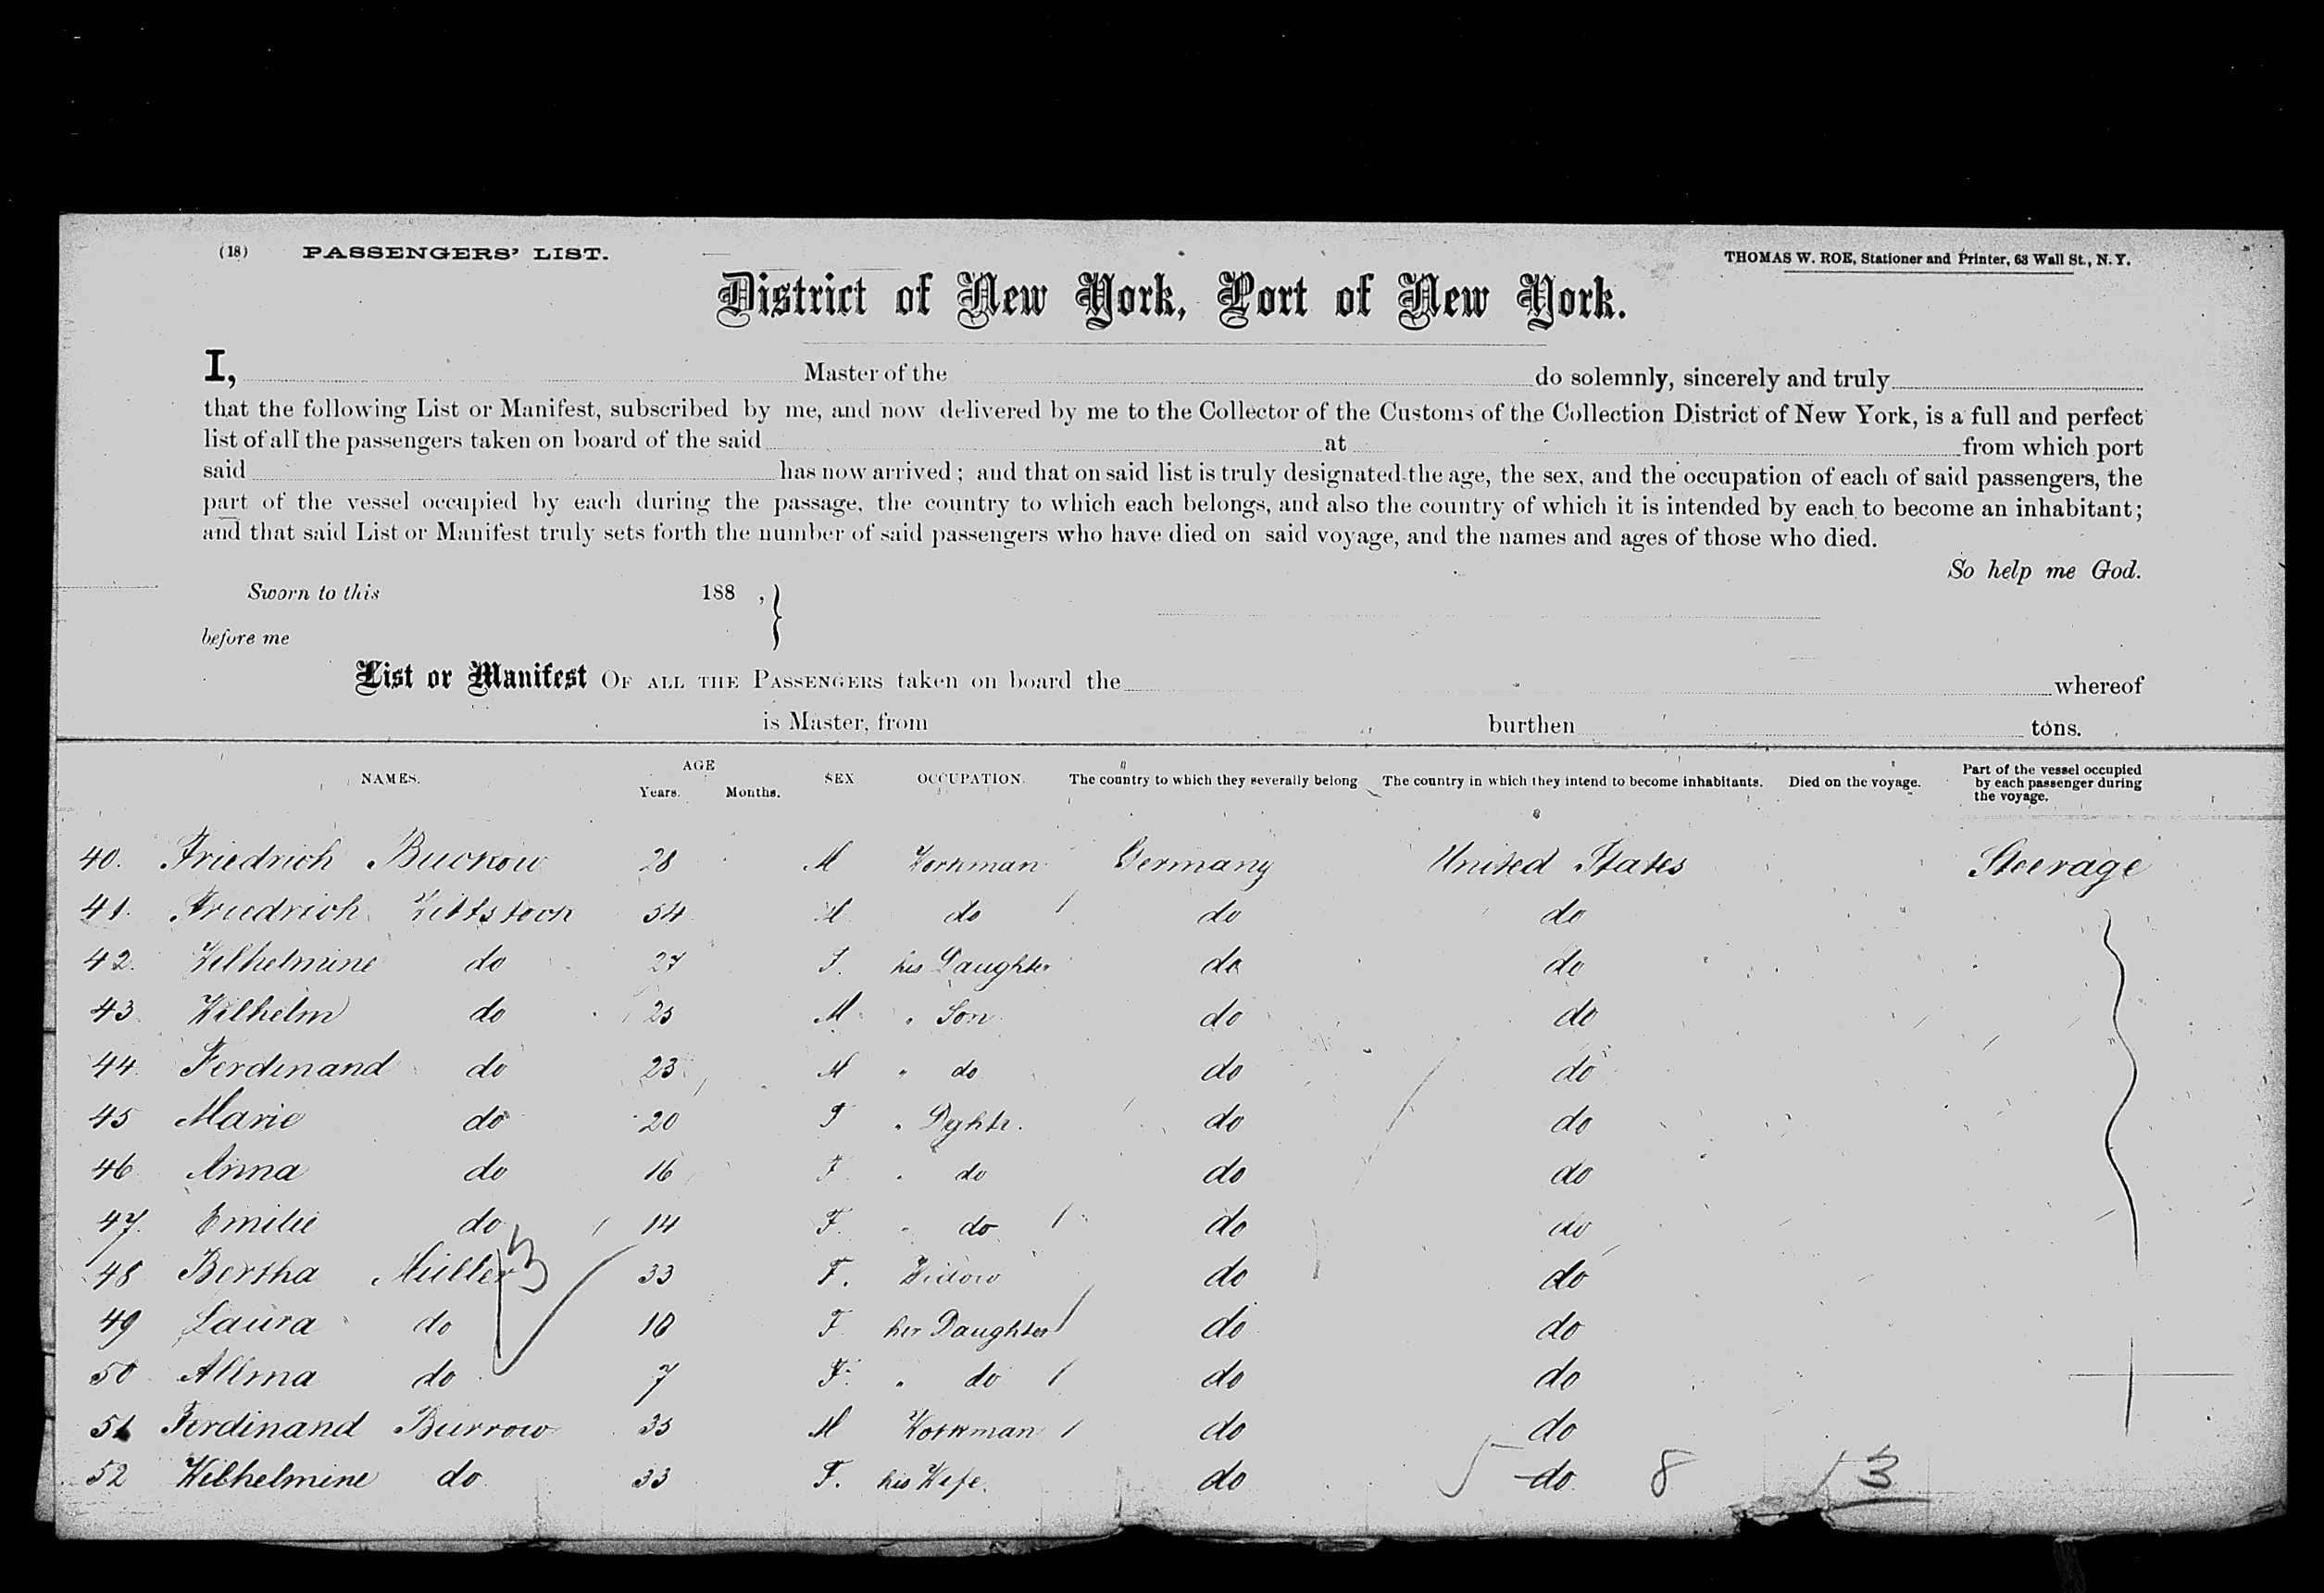 (18) PASSENGERS' LIST. THOMAS W. ROE, Stationer and Printer, 63 Wall St., N. Y.
District of New York, Port of New York.
I, Master of the do solemnly, sincerely and truly
that the following List or Manifest, subscribed by me, and now delivered by me to the Collector of the Customs of the Collection District of New York, is a full and perfect
list of all the passengers taken on board of the said at from which port
said has now arrived; and that on said list is truly designated the age, the sex, and the occupation of each of said passengers, the
part of the vessel occupied by each during the passage, the country to which each belongs, and also the country of which it is intended by each to become an inhabitant;
and that said List or Manifest truly sets forth the number of said passengers who have died on said voyage, and the names and ages of those who died.
So help me God.
Sworn to this 188 , }
before me
List or Manifest OF ALL THE PASSENGERS taken on board the whereof
is Master, from burthen tons.
NAMES. AGE Years. Months. SEX OCCUPATION. The country to which they severally belong The country in which they intend to become inhabitants. Died on the voyage. Part of the vessel occupied by each passenger during the voyage.
40. Friedrich Buckow 28 M Workman Germany United States Steerage
41. Friedrich Wittstock 54 M do do do
42. Wilhelmine do 27 F. his Daughter do do
43 Wilhelm do 25 M " Son do do
44 Ferdinand do 23 M " do do do
45 Marie do 20 F " Dghtr. do do
46 Anna do 16 F. " do do do
47. Emilie do 14 F. " do do do
48 Bertha Müller 33 F. Widow do do
49 Laura do 10 F her Daughter do do
50 Allma do 7 F. " do do do
51 Ferdinand Burrow 35 M Workman do do
52 Wilhelmine do 33 F. his Wife. do do 8 13